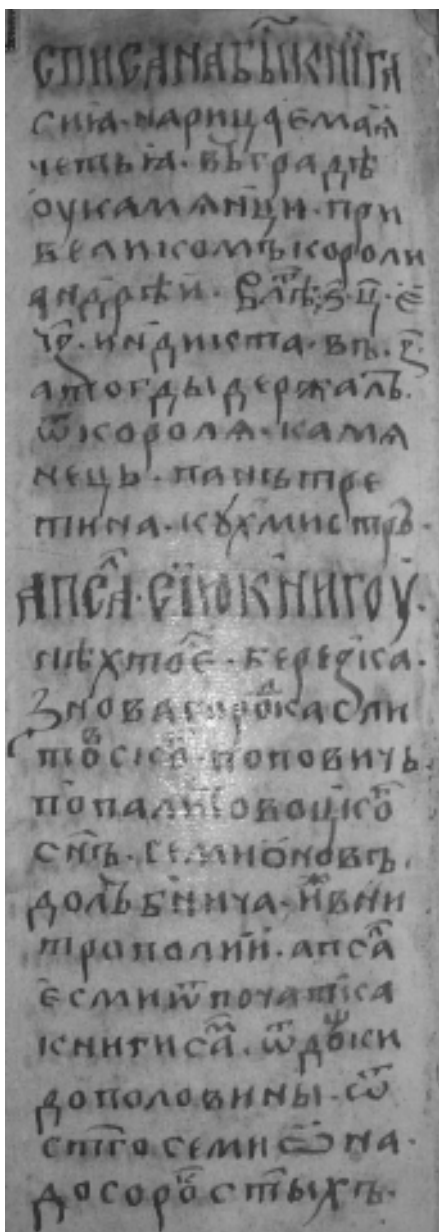 списана бы́ книга
сиꙗ · нарицаемаꙗ
четьꙗ · въ градѣ
оу камянци · при
великомъ короли
андрѣи · в лѣ ҂ѕ ц е
индикта · въ
а тогды держалъ ·
ѿ короля · камя
нець · панъ тре
тина · кухмистръ ·
а псаⷧ · сїю книгоу ·
нѣхто є · берєзка ·
з новагородка с ли
товского · поповичь ·
попа литовоцко
снъ · семионовъ ·
дольбнича ·
трополии · а псаⷧ
єсми ѿ початка
книги саⷨ · ѿ
до половины · ѿ
стго семиѡна ·
до соро стыхъ ·